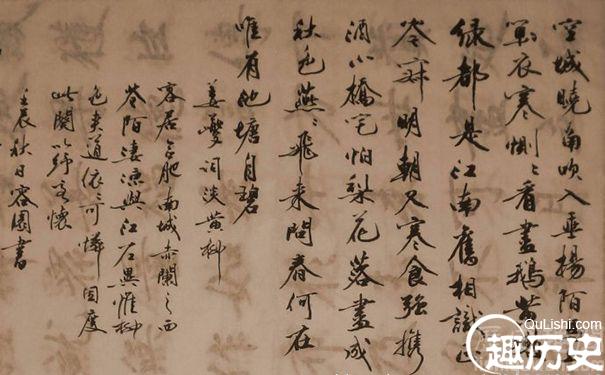 空城曉角吹入垂楊陌
單衣寒惻〻看盡鵝黃
绿都是江南舊相識正
岑寂明朝又寒食強攜
酒小橋宅怕梨花落盡成
秋色燕〻飛来問春何在
唯有池塘自碧
姜夔词淡黄柳
客居合肥南城赤闌之西
巷陌淒凉與江左異惟柳
色夾道依〻可憐因度
此闋以紓客懷
壬辰秋日容園書
QuLishi.com
趣历史